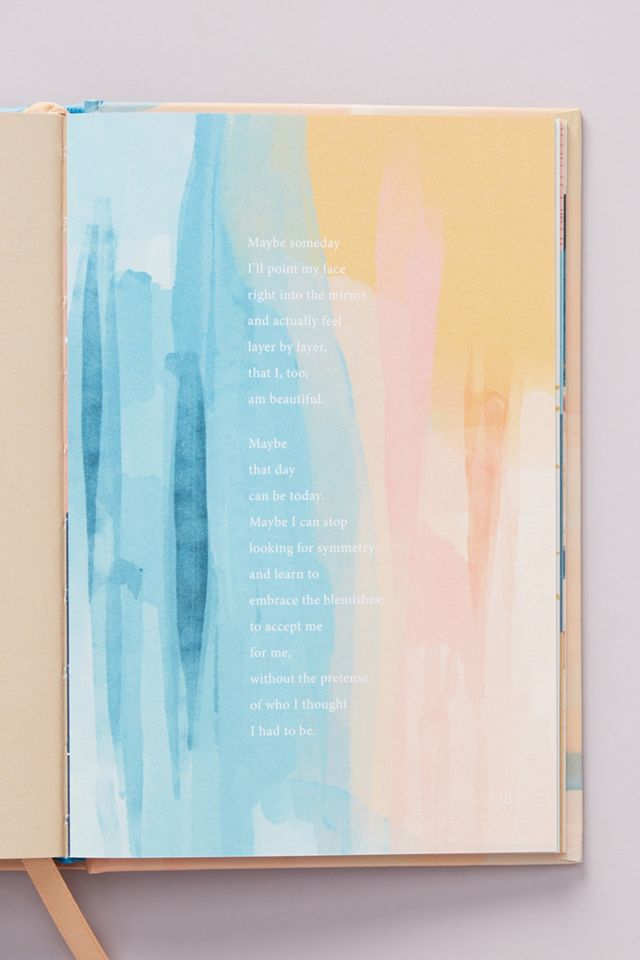 Maybe someday
I'll point my face
right into the mirror
and actually feel
layer by layer,
that I, too,
am beautiful.
Maybe
that day
can be today.
Maybe I can stop
looking for symmetry
and learn to
embrace the blemishes;
to accept me
for me,
without the pretense
of who I thought
I had to be.